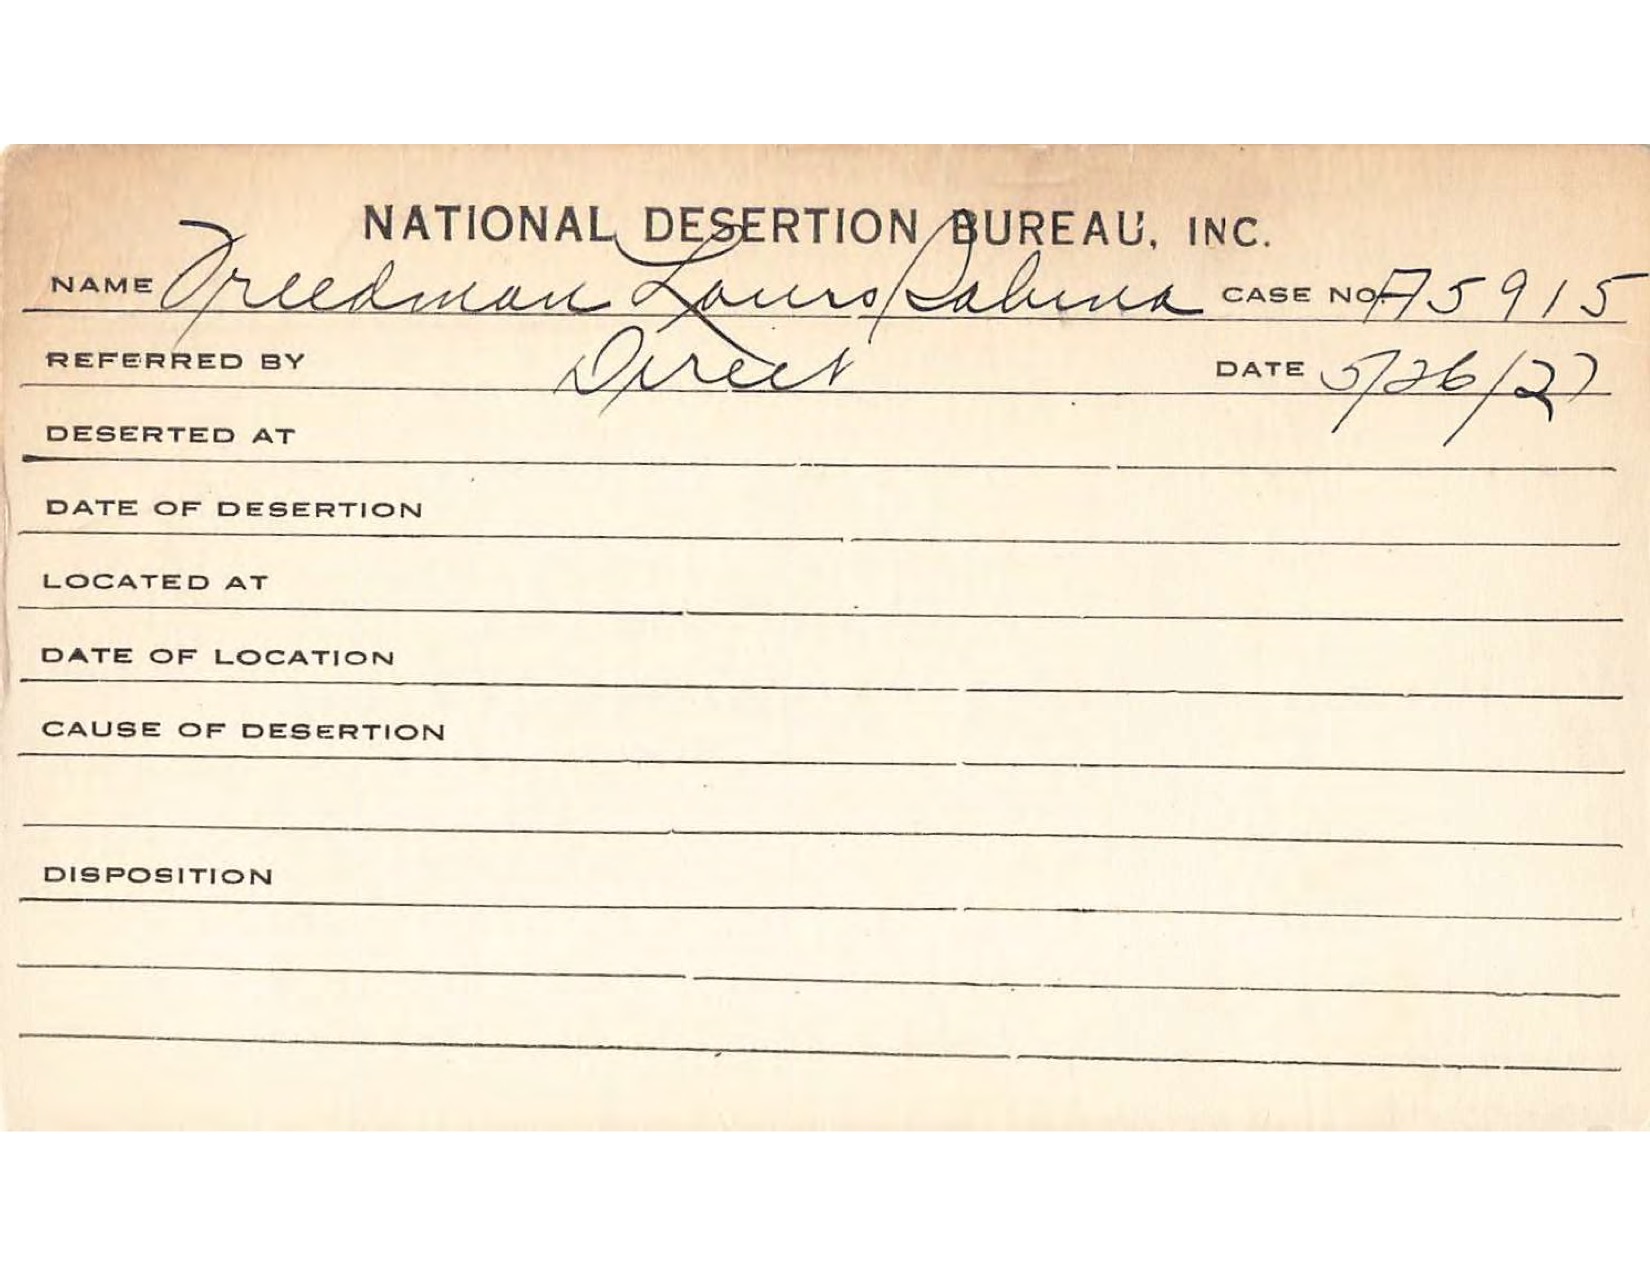 NATIONAL DESERTION BUREAU, INC.
NAME Freedman Louis Sabina CASE NO. A5915
REFERRED BY Direct DATE 5/26/27
DESERTED AT
DATE OF DESERTION
LOCATED AT
DATE OF LOCATION
CAUSE OF DESERTION
DISPOSITION